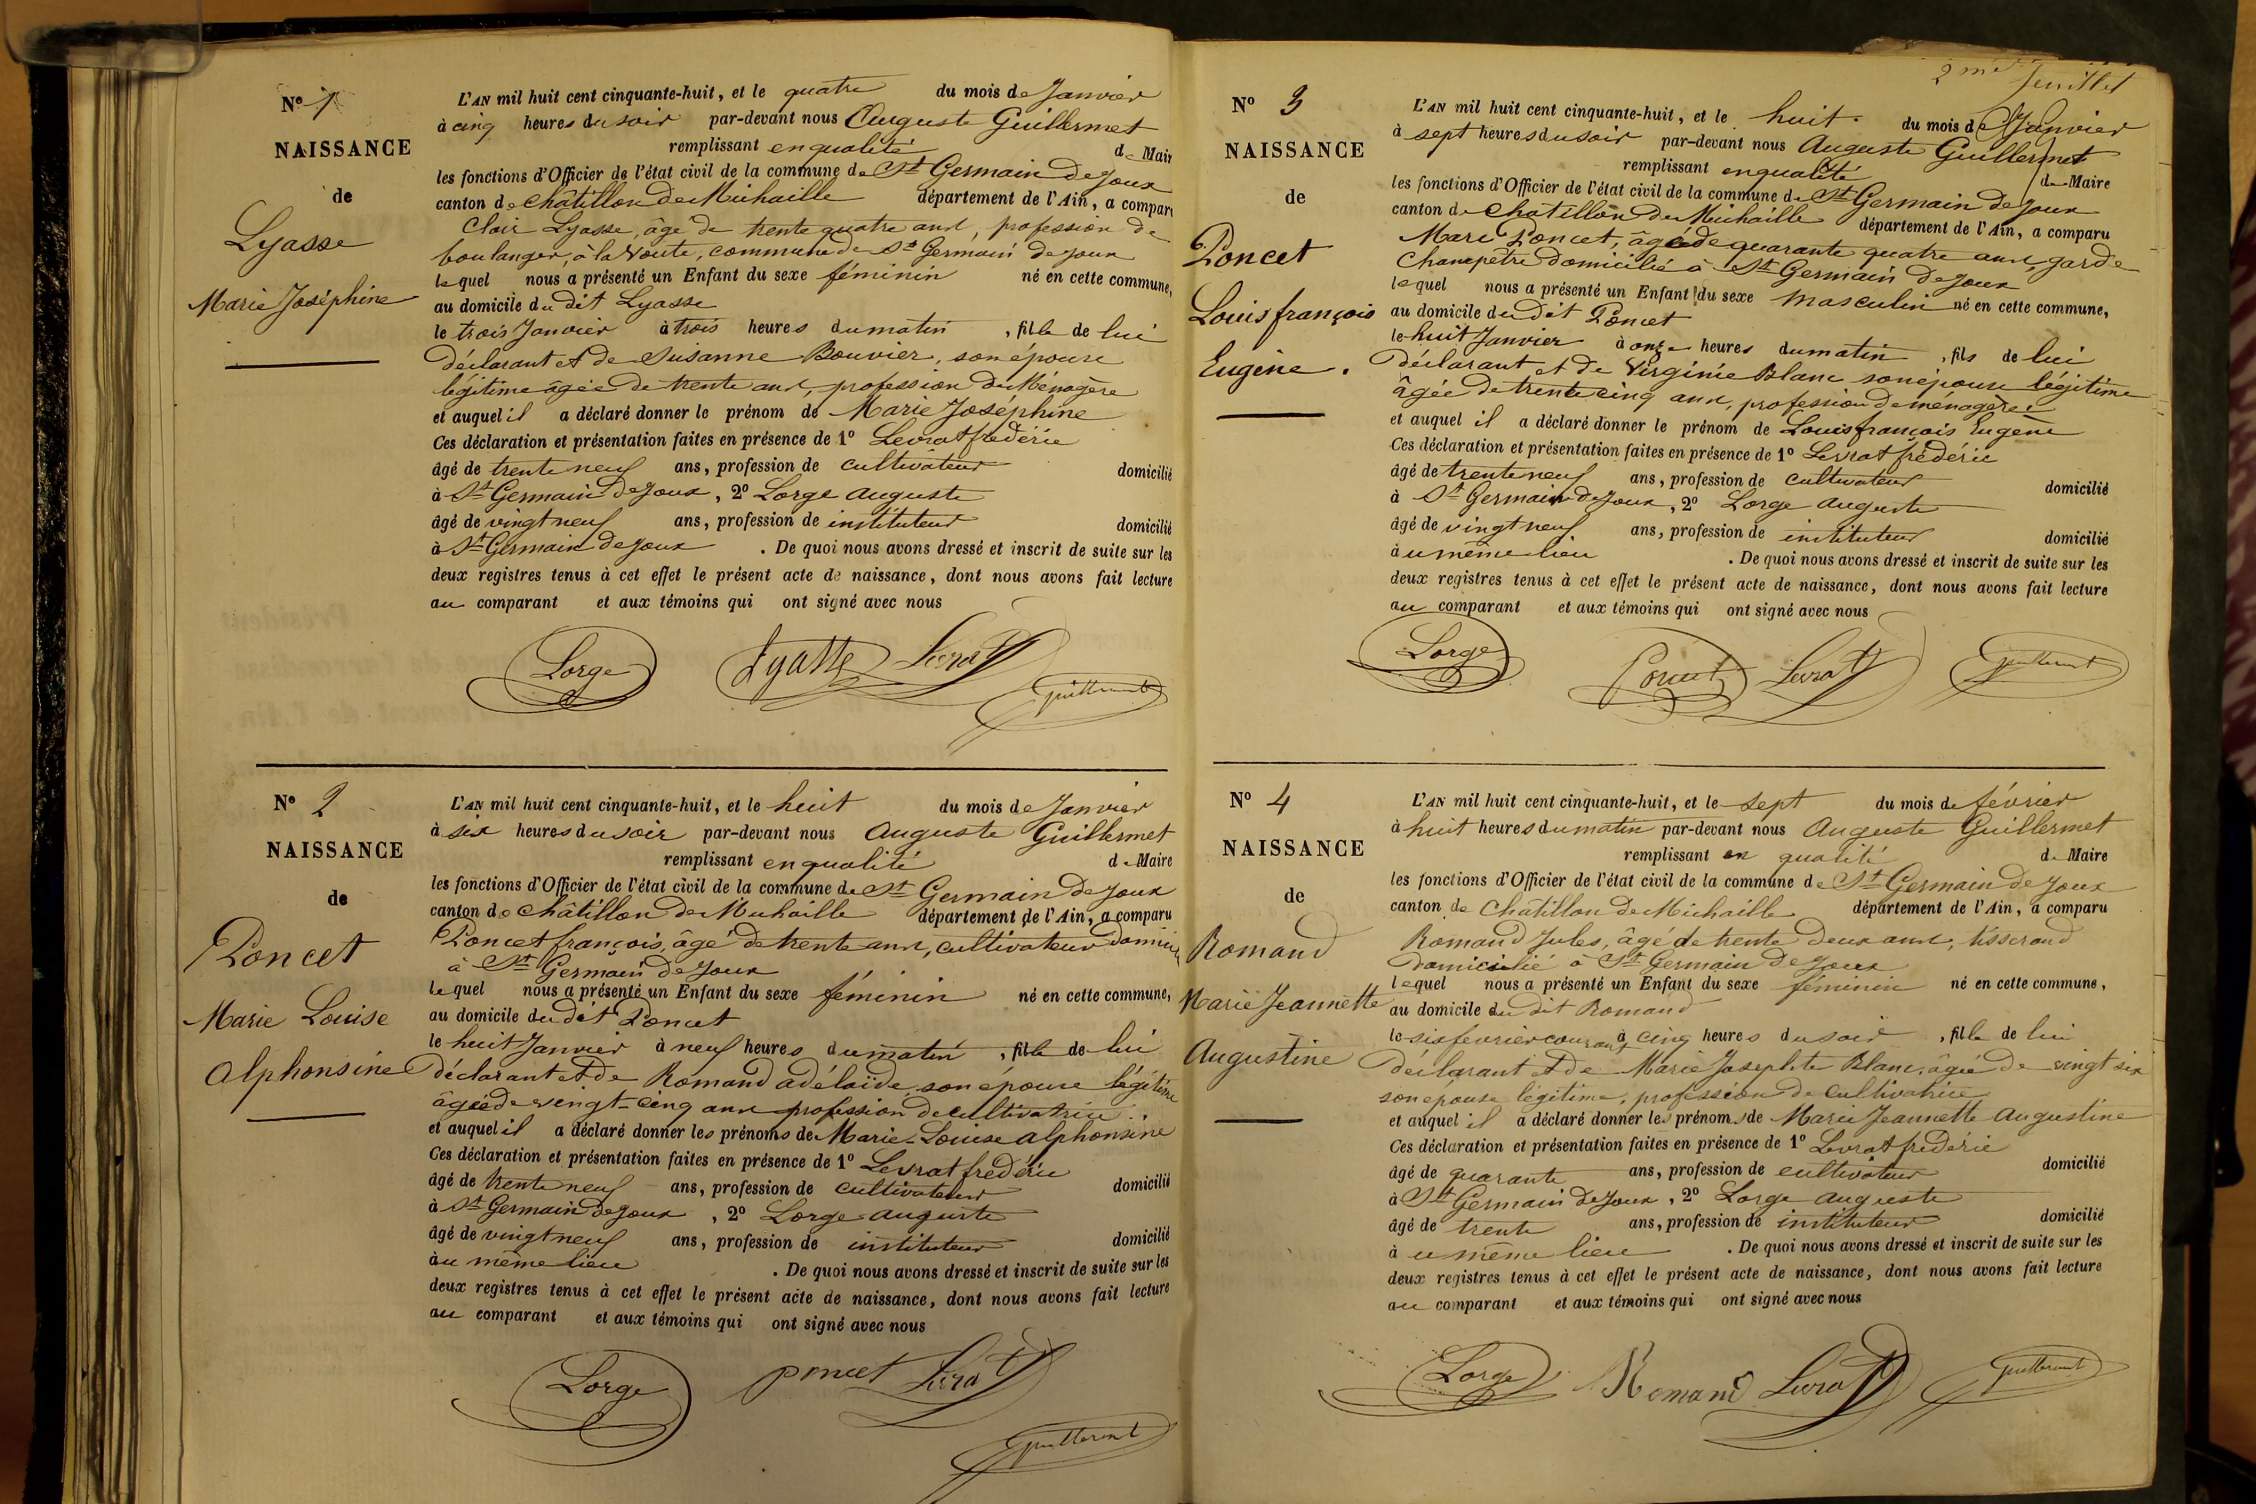 Nº 1
NAISSANCE
de
Lyasse
Marie Joséphine
L'AN mil huit cent cinquante-huit, et le quatre du mois de Janvier
à cinq heures du soir par-devant nous Auguste Guillermet
remplissant en qualité de Mair
les fonctions d'Officier de l'état civil de la commune de St Germain de Joux
canton de Châtillon de Michaille département de l'Ain, a comparu
Clair Lyasse, âgé de trente quatre ans, profession de
boulanger, à la Voute, commune de St Germain de Joux
lequel nous a présenté un Enfant du sexe féminin né en cette commune,
au domicile du dit Lyasse
le trois Janvier à trois heures du matin, fille de lui
déclarant et de Susanne Bouvier, son épouse
légitime âgée de trente ans, profession de Ménagère
et auquel il a déclaré donner le prénom de Marie Joséphine
Ces déclaration et présentation faites en présence de 1º Levrat frédéric
âgé de trente neuf ans, profession de cultivateur domicilié
à St Germain de Joux, 2º Lorge auguste
âgé de vingt neuf ans, profession de instituteur domicilié
à St Germain de Joux. De quoi nous avons dressé et inscrit de suite sur les
deux registres tenus à cet effet le présent acte de naissance, dont nous avons fait lecture
au comparant et aux témoins qui ont signé avec nous
Lorge Lyasse Levrat
Guillermet
Nº 2
NAISSANCE
de
Poncet
Marie Louise
Alphonsine
L'AN mil huit cent cinquante-huit, et le huit du mois de Janvier
à six heures du soir par-devant nous Auguste Guillermet
remplissant en qualité de Maire
les fonctions d'Officier de l'état civil de la commune de St Germain de Joux
canton de Châtillon de Michaille département de l'Ain, a comparu
Poncet françois, âgé de trente ans, cultivateur domici
à St Germain de Joux
lequel nous a présenté un Enfant du sexe féminin né en cette commune,
au domicile du dit Poncet
le huit Janvier à neuf heures du matin, fille de lui
déclarant et de Romand adélaïde, son épouse légitime
âgée de vingt-cinq ans profession de cultivatrice.
et auquel il a déclaré donner les prénoms de Marie-Louise alphonsine
Ces déclaration et présentation faites en présence de 1º Levrat frédéric
âgé de trente neuf ans, profession de cultivateur domicilié
à St Germain de Joux, 2º Lorge auguste
âgé de vingt neuf ans, profession de instituteur domicilié
au même lieu. De quoi nous avons dressé et inscrit de suite sur les
deux registres tenus à cet effet le présent acte de naissance, dont nous avons fait lecture
au comparant et aux témoins qui ont signé avec nous
Lorge poncet Levrat
Guillermet
2me feuillet
Nº 3
NAISSANCE
de
Poncet
Louis françois
Eugène.
L'AN mil huit cent cinquante-huit, et le huit. du mois de Janvier
à sept heures du soir par-devant nous Auguste Guillermet
remplissant en qualité de Maire
les fonctions d'Officier de l'état civil de la commune de St Germain de Joux
canton de Châtillon de Michaille département de l'Ain, a comparu
Marc Poncet, âgé de quarante quatre ans, garde
Champêtre domicilié à St Germain de Joux
lequel nous a présenté un Enfant du sexe Masculin né en cette commune,
au domicile du dit Poncet
le huit Janvier à onze heures du matin, fils de lui
déclarant et de Virginie Blanc son épouse légitime
âgée de trente cinq ans, profession de ménagère.
et auquel il a déclaré donner le prénom de Louis françois Eugène
Ces déclaration et présentation faites en présence de 1º Levrat frédéric
âgé de trente neuf ans, profession de cultivateur domicilié
à St Germain de Joux, 2º Lorge auguste
âgé de vingt neuf ans, profession de instituteur domicilié
au même lieu. De quoi nous avons dressé et inscrit de suite sur les
deux registres tenus à cet effet le présent acte de naissance, dont nous avons fait lecture
au comparant et aux témoins qui ont signé avec nous
Lorge Poncet Levrat Guillermet
Nº 4
NAISSANCE
de
Romand
Marie Jeannette
Augustine
L'AN mil huit cent cinquante-huit, et le sept du mois de février
à huit heures du matin par-devant nous Auguste Guillermet
remplissant en qualité de Maire
les fonctions d'Officier de l'état civil de la commune de St Germain de Joux
canton de Châtillon de Michaille département de l'Ain, a comparu
Romand Jules, âgé de trente deux ans, tisserand
domicilié à St Germain de Joux
lequel nous a présenté un Enfant du sexe féminin né en cette commune,
au domicile du dit Romand
le six fevrier courant à cinq heures du soir, fille de lui
déclarant et de Marie Josephte Blanc, âgée de vingt six
son épouse légitime, profession de cultivatrice
et auquel il a déclaré donner les prénoms de Marie Jeannette Augustine
Ces déclaration et présentation faites en présence de 1º Levrat frédéric
âgé de quarante ans, profession de cultivateur domicilié
à St Germain de Joux, 2º Lorge auguste
âgé de trente ans, profession de instituteur domicilié
au même lieu. De quoi nous avons dressé et inscrit de suite sur les
deux registres tenus à cet effet le présent acte de naissance, dont nous avons fait lecture
au comparant et aux témoins qui ont signé avec nous
Lorge Romand Levrat Guillermet